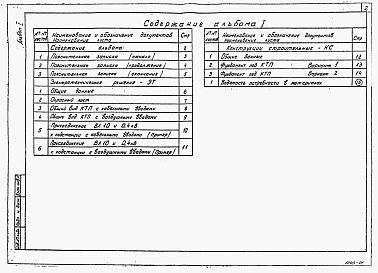 2
Альбом I
Содержание альбома I
№ № листа
Наименование и обозначение документов
Наименование листа
Стр
Содержание альбома
2
1 Пояснительная записка (начало) 3
2 Пояснительная записка (продолжение) 4
3 Пояснительная записка (окончание) 5
Электротехнические решения - ЭТ
1 Общие данные 6
2 Опросный лист 7
3 Общий вид КТП с кабельными вводами 8
4 Общий вид КТП с воздушными вводами 9
5 Присоединение ВЛ 10 и 0,4кВ
к подстанции с кабельными вводами (Пример) 10
6 Присоединение ВЛ 10 и 0,4кВ
к подстанции с воздушными вводами (Пример) 11
№ № листа
Наименование и обозначение документов
Наименование листа
Стр
Конструкции строительные - КС
1 Общие данные 12
2 Фундамент под КТП Вариант 1 13
3 Фундамент под КТП Вариант 2 14
1 Ведомость потребности в материалах 15